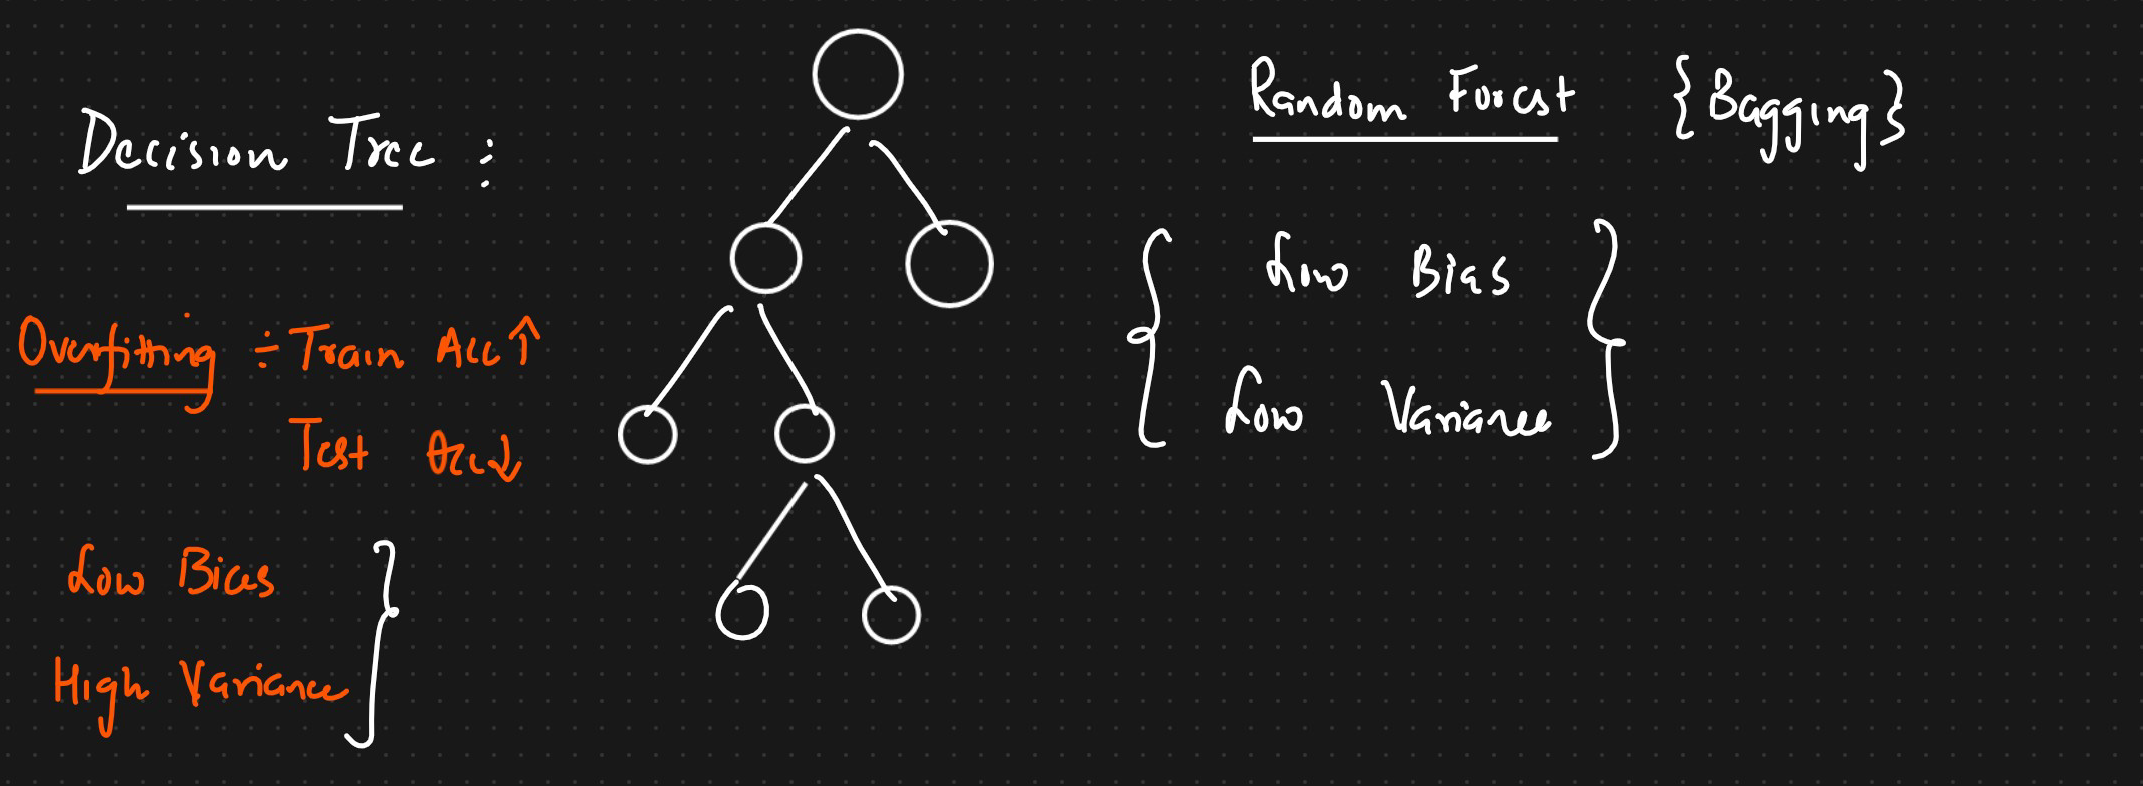 Decision Tree :
Overfitting ÷ Train Acc ↑
Test Acc ↓
Low Bias
High Variance
Random Forest {Bagging}
Low Bias
Low Variance